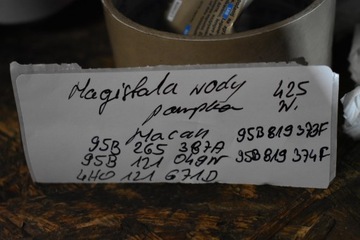 Magistala wody 425
pompka N.
Macan 95B 819 373F
95B 265 387A
95B 121 049N 95B 819 374F
4H0 121 671D